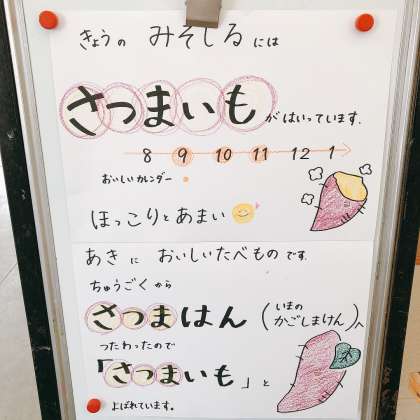 きょうの みそしるには
さつまいもがはいっています.
8 9 10 11 12 1
おいしいカレンダー
ほっこりとあまい
あきに おいしいたべものです.
ちゅうごくから
さつまはん(いまの かごしまけん)へ
つたわったので
「さつまいも」と
よばれています。